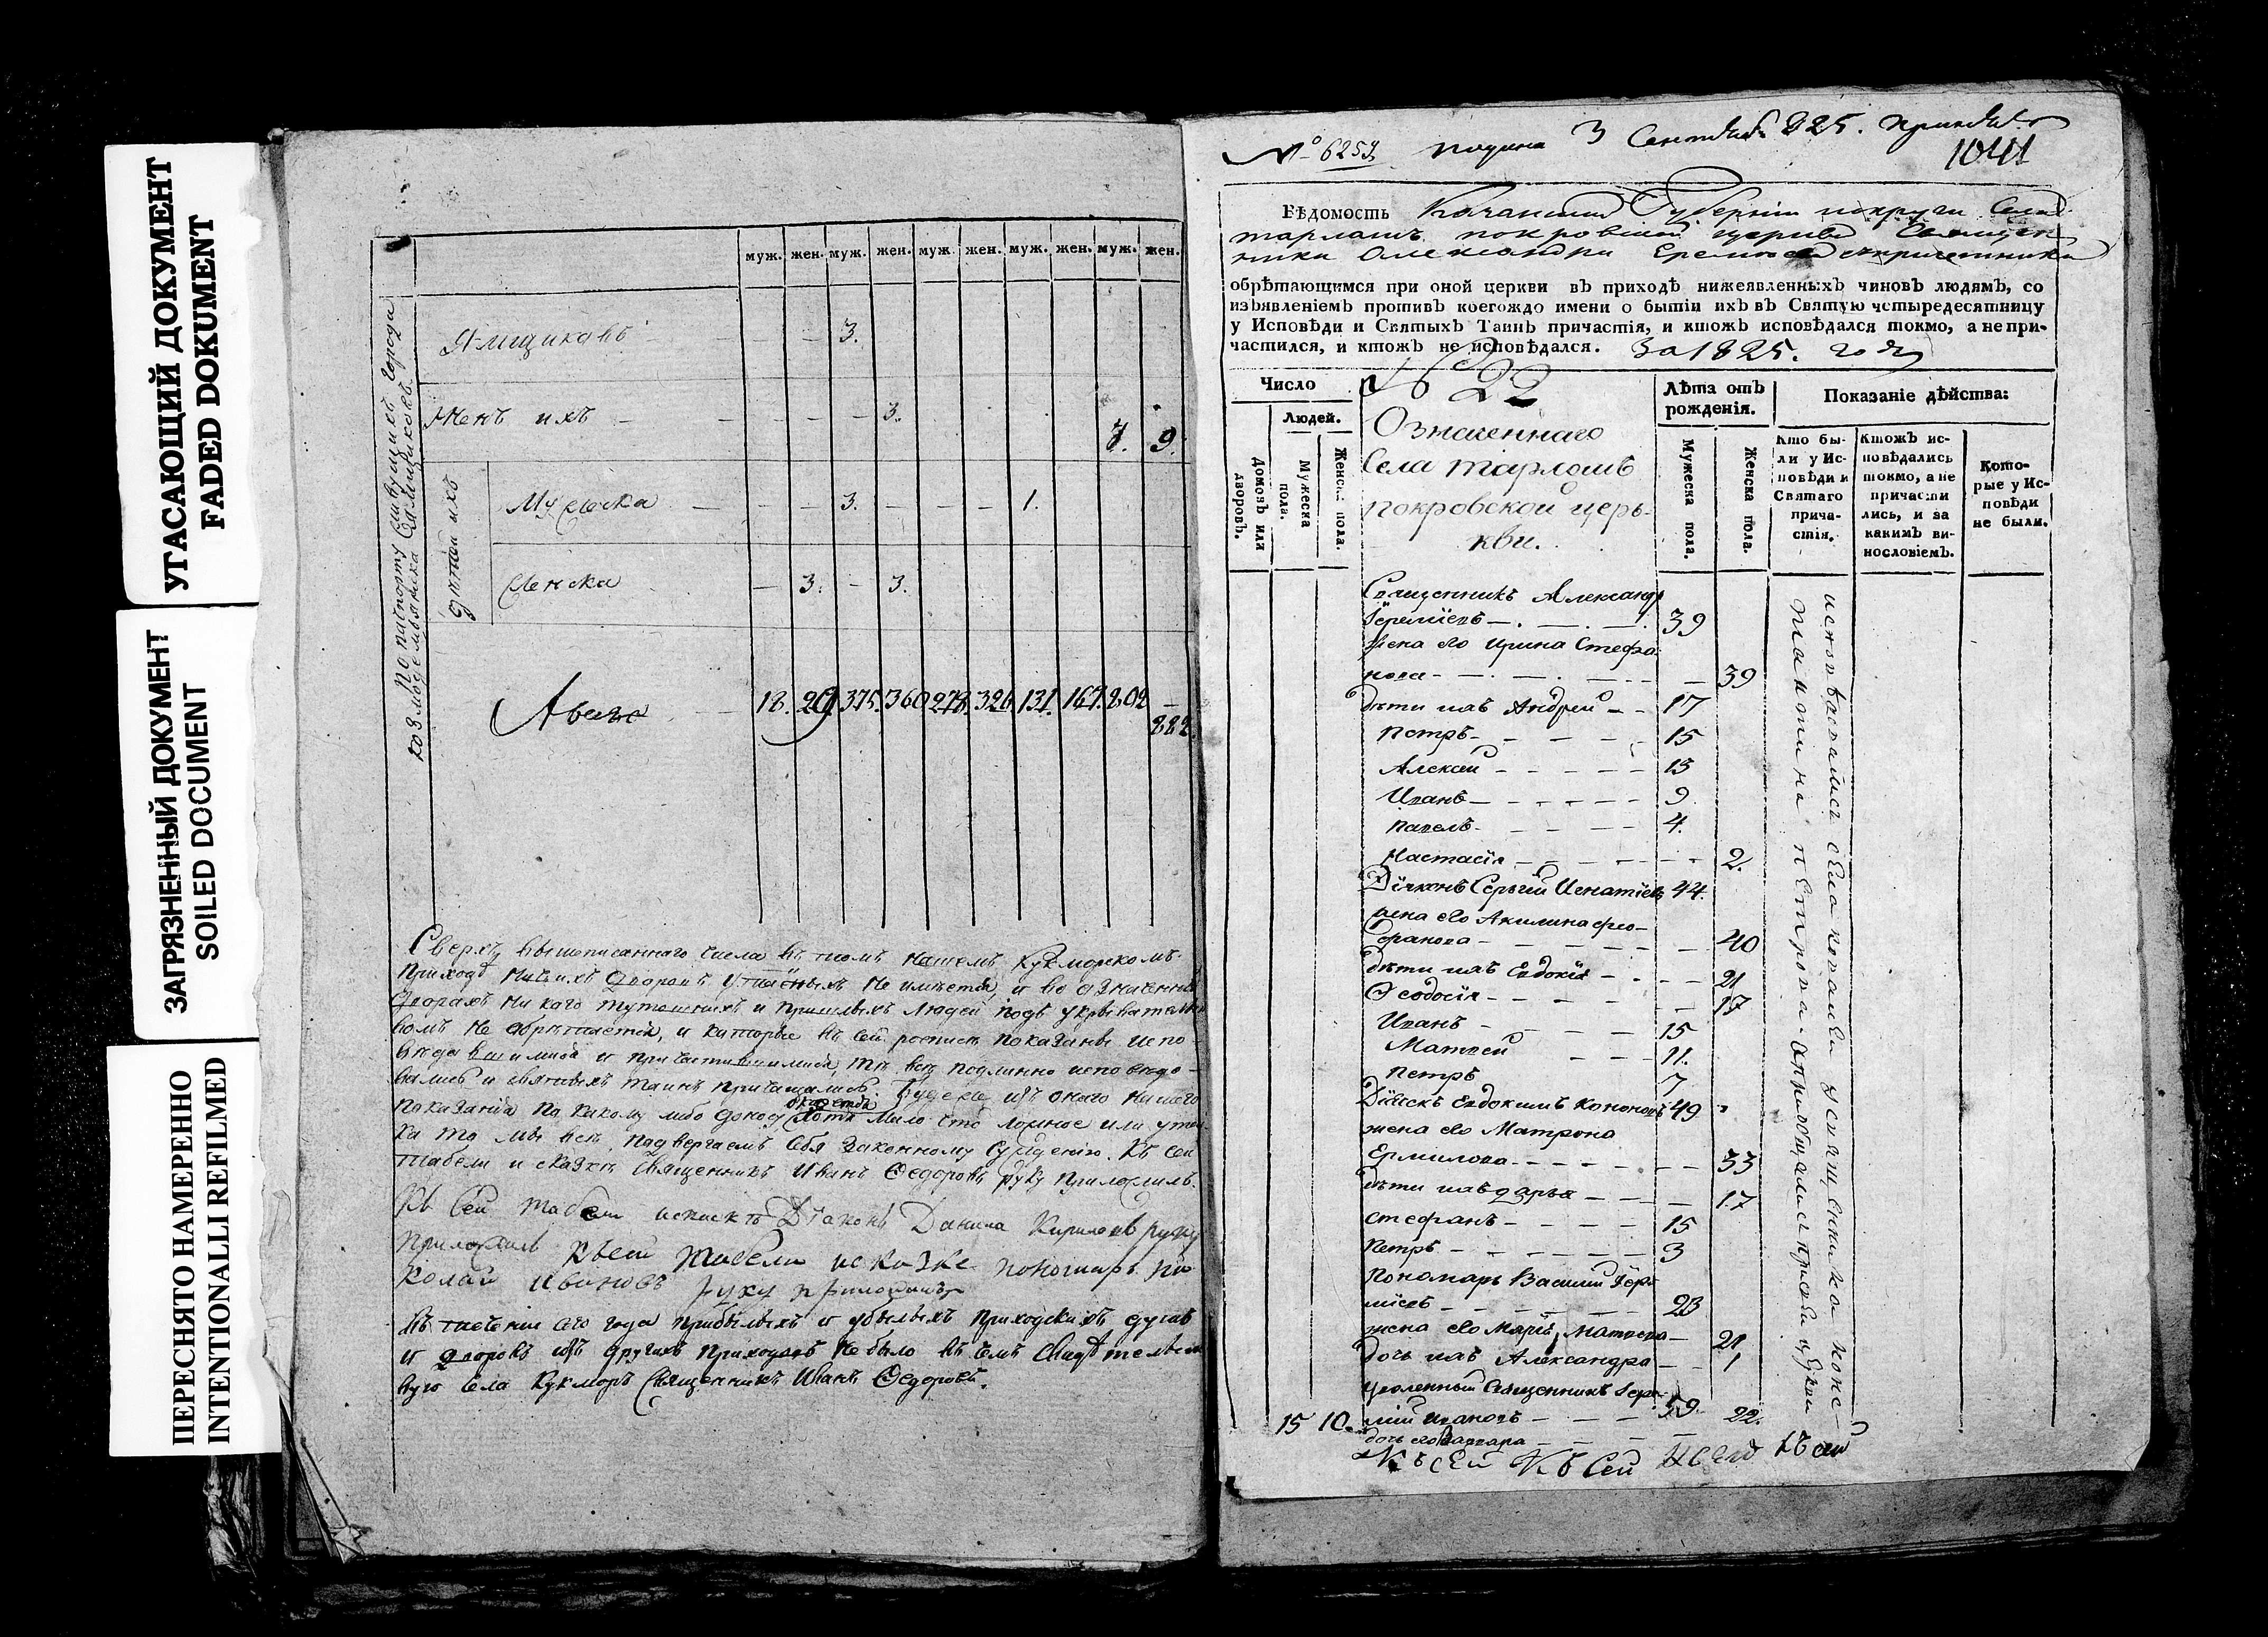 УГАСАЮЩИЙ ДОКУМЕНТ
FADED DOKUMENT
ЗАГРЯЗНЕННЫЙ ДОКУМЕНТ
SOILED DOCUMENT
ПЕРЕСНЯТО НАМЕРЕННО
INTENTIONALLI REFILMED
муж. жен. муж. жен. муж. жен. муж. жен. муж. жен.
Ямщиковъ 3.
Женъ ихъ 3. 7. 9.
дѣтей ихъ
Мужеска 3. 1.
Женска 3. 3.
18. 29. 375. 360 278. 326. 131. 167. 802 882.
Сверхъ вышеписаннаго числа въ томъ нашемъ Кукморскомъ
приходѣ ничьихъ дворовъ утаеныхъ не имѣется, и во означенныхъ
дворахъ ни кого тутошнихъ и пришлыхъ людей подъ укрывателст
вомъ не обрѣтается, и которые въ сей росписи показаны испо
вѣдавшимися и причастившимися, тѣ всѣ подлинно исповѣдо-
вались и святыхъ таинъ причащались. Буде же изъ онаго нашего
окажется
показанія по какому либо доносу хотя мало что ложное или утай
ка то мы всѣ подвергаемъ себя законному сужденію. Къ сей
табели и сказкѣ Священникъ Иванъ Ѳедоровъ руку приложилъ.
Къ сей табели искаскѣ Діаконъ Данила Кириловъ руку
приложилъ Къ сей табели исказке пономарь ни
колай ивановъ руку приложилъ
Въ теченіи сего года прибылыхъ и убылыхъ приходскихъ душъ
и дворовъ изъ другихъ приходовъ не было въ чемъ свидѣтельст
вую села Кукморъ Священникъ Иванъ Ѳедоровъ.
№ 6259 3 Сентября 825.
1041
Вѣдомость Казанской Губерніи
тарлашъ покровской церкви Священ
ника Александра Еремѣева
обрѣтающимся при оной церкви въ приходѣ нижеявленныхъ чиновъ людямъ, со
изъявленіемъ противъ коегождо имени о бытіи ихъ въ Святую четыредесятницу
у Исповѣди и Святыхъ Таинъ причастія, и ктожъ исповѣдался токмо, а не при-
частился, и ктожъ не исповѣдался. За 1825. годъ
Число
Людей.
Домовъ или дворовъ.
Мужеска пола.
Женска пола.
№ 22
Означеннаго
Села тарлашъ
покровской церь-
кви.
Лѣта отъ рожденія.
Мужеска пола.
Женска пола.
Показаніе дѣйства:
Кто бы-
ли у Ис-
повѣди и
Святаго
прича-
стія.
Ктожъ ис-
повѣдались
токмо, а не
причасти
лись, и за
какимъ ви-
нословіемъ.
Кото-
рые у Ис-
повѣди
не были.
Священникъ Александр
Іеремѣевъ 39
жена его Ирина Стефа
нова 39
дѣти ихъ Андрей 17
Петръ 15
Алексѣй 13
Иванъ 9
Павелъ 4.
Настасія 2.
Діяконъ Сергѣй Игнатіевъ 44.
жена его Акилина Фео-
фанова 40
дѣти ихъ Евдокія 21
Ѳеодосія 17
Иванъ 15
Матвей 11.
Петръ 7
Дьячекъ Евдокимъ Кононовъ 49
жена его Матрона
Ермилова 33
дѣти ихъ дарья 17
Стефанъ 15
Петръ 3
Пономарь Василій Іере
мѣевъ 23
жена его Марья Матвева 21
дочь ихъ Александра 1
уволенный Священникъ Іере-
мій Ивановъ 59.
дочь его Варвара 22.
15 10.
Къ сей Къ Сей Къ сей Къ сей